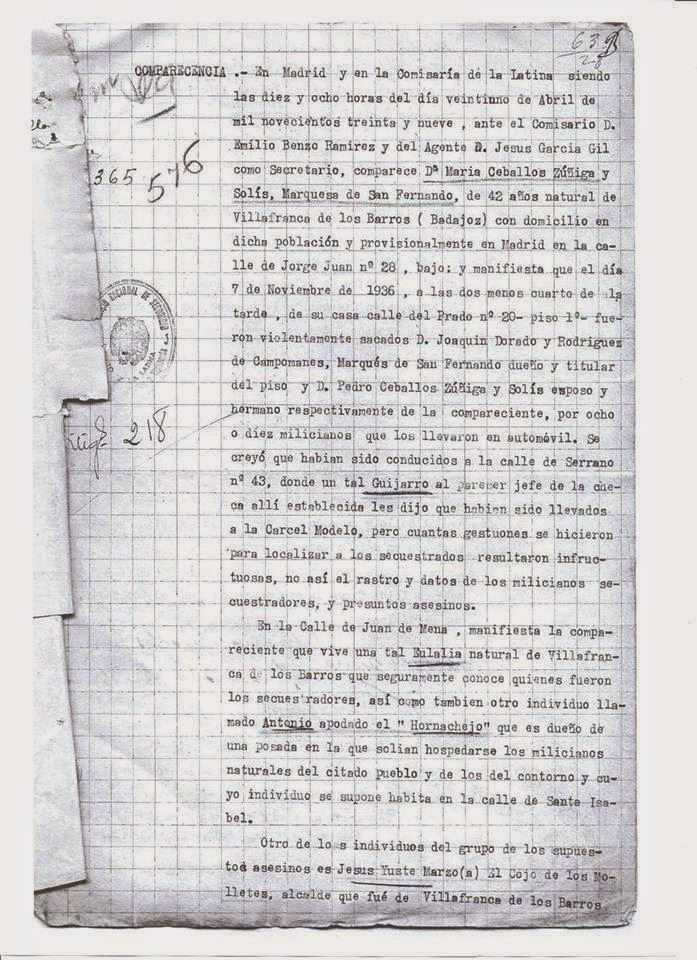 639
28
COMPARECENCIA .- En Madrid y en la Comisaría de la Latina siendo
las diez y ocho horas del día veintiuno de Abril de
mil novecientos treinta y nueve , ante el Comisario D.
Emilio Benzo Ramirez y del Agente D. Jesus Garcia Gil
como Secretario, comparece Dª Maria Ceballos Zúñiga y
Solís, Marquesa de San Fernando, de 42 años natural de
Villafranca de los Barros ( Badajoz) con domicilio en
dicha población y provisionalmente en Madrid en la ca-
lle de Jorge Juan nº 28 , bajo; y manifiesta que el día
7 de Noviembre de 1936 , a las dos menos cuarto de la
tarde , de su casa calle del Prado nº 20- piso 1º- fue-
ron violentamente sacados D. Joaquin Dorado y Rodriguez
de Campomanes, Marqués de San Fernando dueño y titular
del piso y D. Pedro Ceballos Zúñiga y Solís esposo y
hermano respectivamente de la compareciente, por ocho
o díez milicianos que los llevaron en automóvil. Se
creyó que habian sido conducidos a la calle de Serrano
nº 43, donde un tal Guijarro al parecer jefe de la che-
ca allí establecida les dijo que habian sido llevados
a la Carcel Modelo, pero cuantas gestuones se hicieron
para localizar a los secuestrados resultaron infruc-
tuosas, no así el rastro y datos de los milicianos se-
cuestradores, y presuntos asesinos.
En la Calle de Juan de Mena , manifiesta la compa-
reciente que vive una tal Eulalia natural de Villafran-
ca de los Barros que seguramente conoce quienes fueron
los secuestradores, así como tambien otro individuo lla-
mado Antonio apodado el " Hornachejo" que es dueño de
una posada en la que solian hospedarse los milicianos
naturales del citado pueblo y de los del contorno y cu-
yo individuo se supone habita en la calle de Santa Isa-
bel.
Otro de los individuos del grupo de los supues-
tod asesinos es Jesus Yuste Marzo(a) El Cojo de los Mo-
lletes, alcalde que fué de Villafranca de los Barros
365
576
218